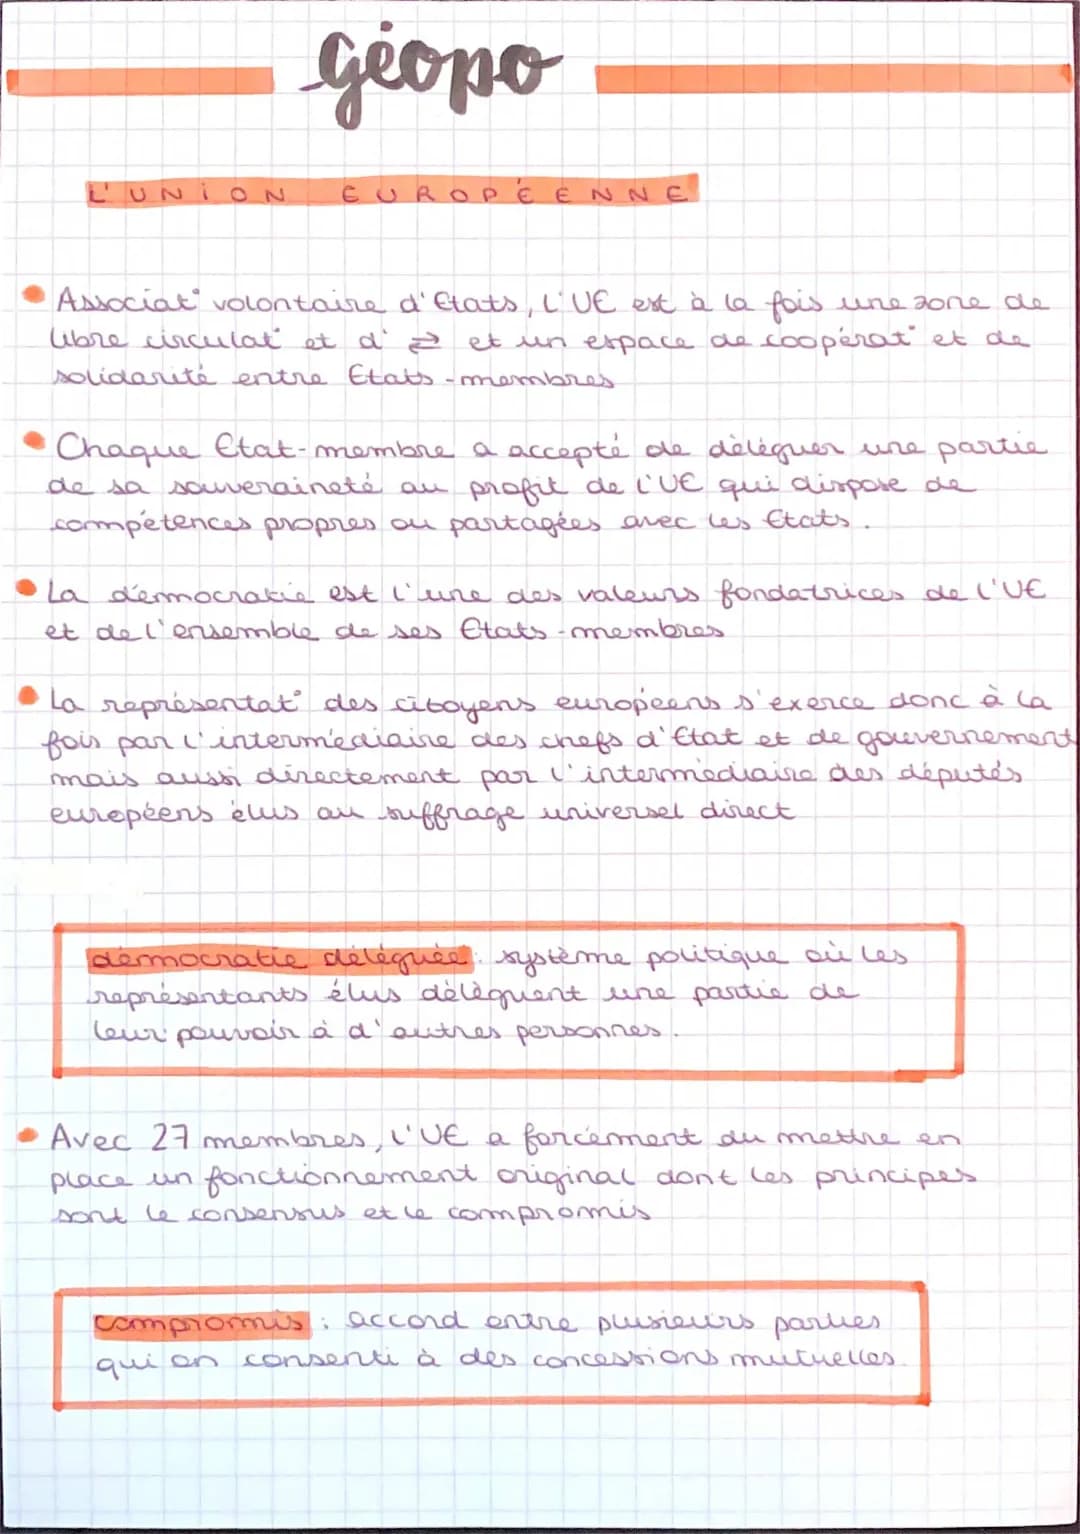 géopo
L'UNION EUROPÉENNE
Associat° volontaire d'Etats, l'UE est à la fois une zone de
libre circulat° et d' ⇄ et un espace de coopérat° et de
solidarité entre Etats-membres
Chaque Etat-membre a accepté de déléguer une partie
de sa souveraineté au profit de l'UE qui dispose de
compétences propres ou partagées avec les Etats.
La démocratie est l'une des valeurs fondatrices de l'UE
et de l'ensemble de ses Etats-membres
La représentat° des citoyens européens s'exerce donc à la
fois par l'intermédiaire des chefs d'Etat et de gouvernement
mais aussi directement par l'intermédiaire des députés
européens élus au suffrage universel direct
démocratie déléguée: système politique où les
représentants élus délèguent une partie de
leur pouvoir à d'autres personnes.
Avec 27 membres, l'UE a forcément du mettre en
place un fonctionnement original dont les principes
sont le consensus et le compromis
compromis: accord entre plusieurs parties
qui on consenti à des concessions mutuelles.